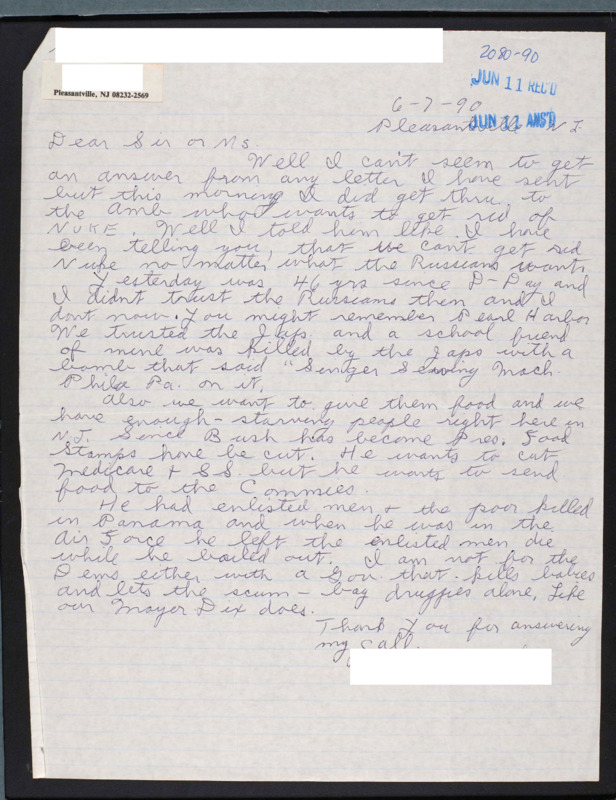 2080-90
JUN 11 REC'D
Pleasantville, NJ 08232-2569
6-7-90
JUN 11 ANS'D
Pleasantville N.J.
Dear Sir or Ms.
Well I can't seem to get
an answer from any letter I have sent
but this morning I did get thru to
the Amb who wants to get rid of
NUKE. Well I told him like I have
been telling you, that we cant get rid
Nuke no matter what the Russians want.
Yesterday was 46 yrs since D-Day and
I didnt trust the Russians then and I
dont now. You might remember Pearl Harbor
We trusted the Japs and a school friend
of mine was killed by the Japs with a
bomb that said "Singer Sewing Mach.
Phila Pa. on it.
Also we want to give them food and we
have enough - starving people right here in
N.J. Since Bush has become Pres. Food
Stamps have be cut. He wants to cut
Medicare + SS but he wants to send
food to the Commies.
He had enlisted men + the poor killed
in Panama and when he was in the
Air Force he left the enlisted men die
while he bailed out. I am not for the
Dems either with a Gov. that kills babies
and lets the scum-bag druggies alone, Like
our Mayor Dix does.
Thank you for answering
my call.